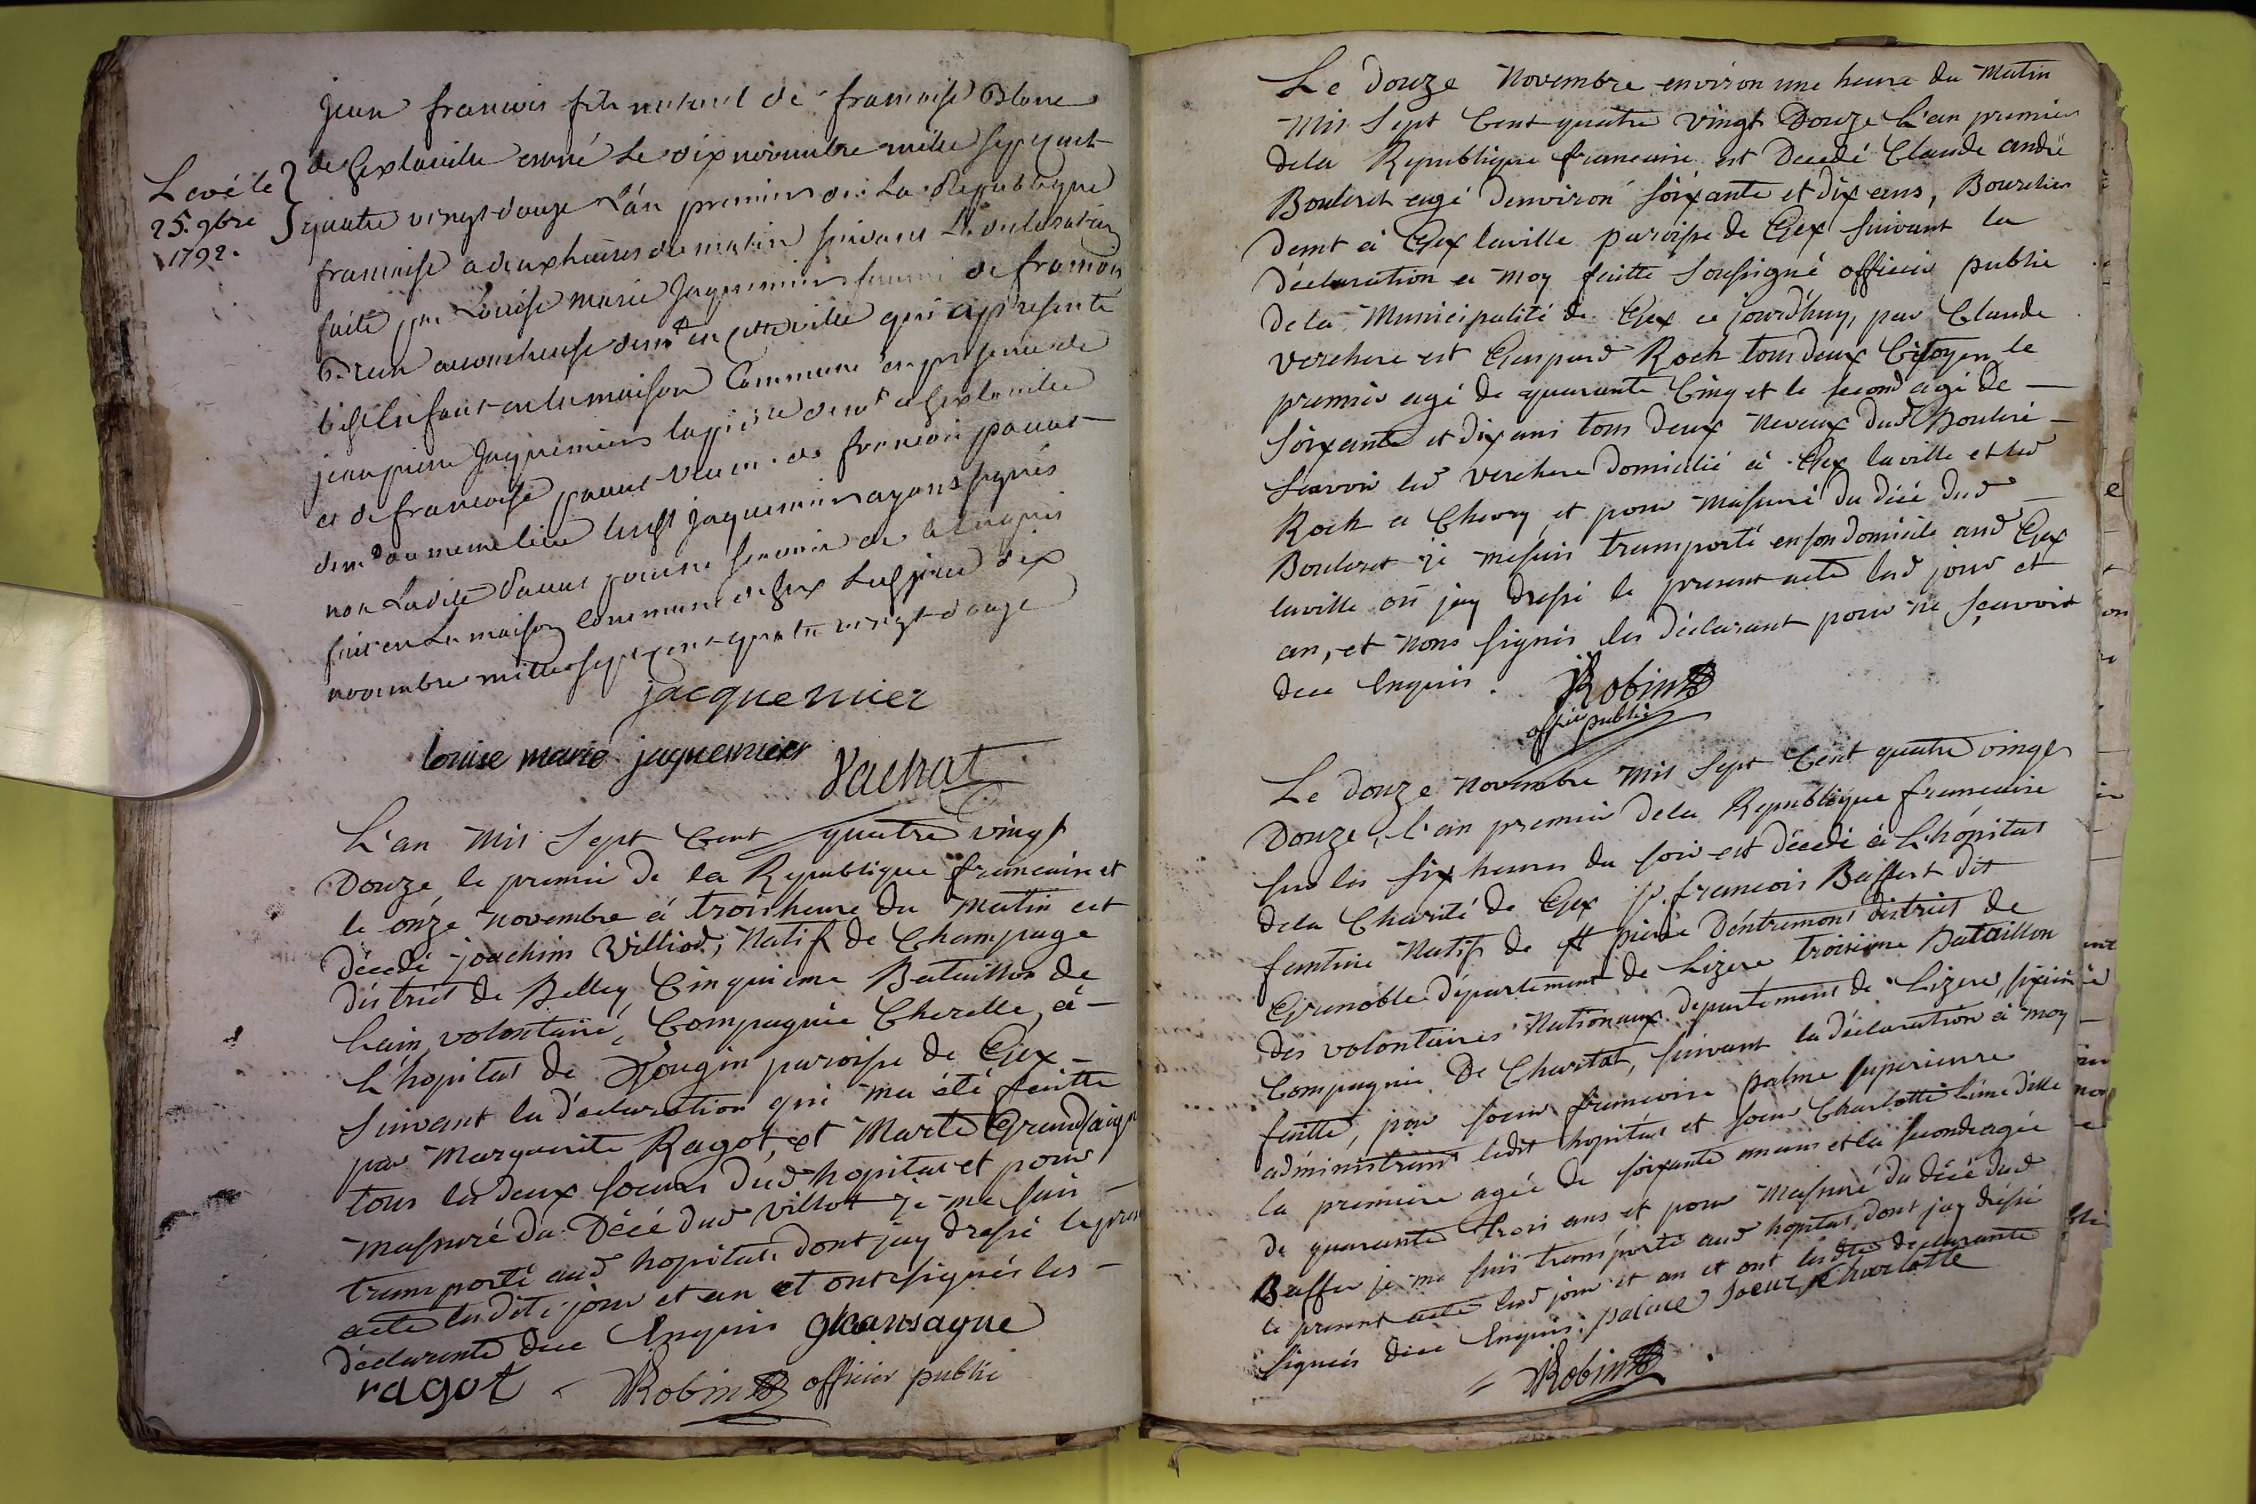 Jean francois fils naturel de francoise Blanc
de Gex la ville est né le dix novembre mille sept cent
Levé le
25. 9bre
1792.
quatre vingt douze L'an premier de La Republique
francoise a deux heures du matin suivant La declaration
faite par Louise marie Jaquemier femme de francois
accoucheuse demt en cette ville qui a presenté
led. Enfant en la maison Commune en presence de
jean pierre Jaquemier demt a Gex la ville
et de francoise de francois
demt au meme lieu lesd. jaquemier ayant signés
non Ladite pour ne scavoir de ce Enquis
fait en La maison Commune de Gex Lesd. jour dix
novembre mille sept cent quatre vingt douze
jacquemier
louise marie jaquemier Vachat
L'an Mil Sept Cent quatre vingt
Douze le premier de la Republique francaise et
le onze Novembre á trois heure du Matin est
Décedé joachim Villiod, Natif de Champage
district de Belley Cinquieme Bataillon de
Lain, volontaire, Compagnie Cherelle, à -
L'hopital de Gougin paroisse de Gex -
Suivant la declaration qui ma été faitte
par Marguerite Ragot, et Marte Grandsaigne
tous les deux soeurs dud hopital et pour
Massuré du Décé dud Villot je me suis -
transporté aud hopital dont jay dressé le pres
acte lesdits jour et an et ont signés les -
déclarante dece Enquis gransagne
ragot Robin officier public
Le douze Novembre environ une heure du Matin
Mil Sept Cent quatre vingt Douze L'an premier
dela Republique francaise est Decedé Claude andré
Bouleret agé d'environ soixante et dix ans, Bourelier
demt à Gex laville paroisse de Gex suivant la
déclaration a moy faitte soussigné officier public
de la Municipalité de Gex ce jourd'huy, par Claude
verchere et Gaspard Roch tous deux Citoyen le
premier agé de quarante Cinq et le second agé de -
soixante et dix ans tous deux neveux dud Bouleré -
scavoir led Verchere domicilié à Gex laville et led
Roch a Chevry et pour Massuré du décé dud -
Bouleret je mesuis transporté en son domicile aud Gex
laville où jay dressé le present acte lesd jour et
an, et Nons signés les déclarant pour ne sçavoir
dece Enquis. Robin
officier public
Le douze Novembre Mil Sept Cent quatre vingt
Douze, l'an premier dela Republique francaise
sur les six heures du soir est décedé à L'hôpital
dela Charité de Gex jp. francois Baffert dit
fantine Natif de st pierre D'entremont district de
Grenoble département de Lizere troisième Bataillon
des volontaires Nationaux departement de Lizere, sixieme
Compagnie De Chartat, suivant la déclaration à moy
faitte, par soeur francoise palme superieure
administrant ledit hopital et soeur Charlotte
la premiere agée de soixante un ans et la seconde agée
de quarante trois ans et pour Massuré du décé dud
Baffer je me suis transporté aud hopital, dont jay dréssé
le present acte lesd jour et an et ont lesdtes declarante
signeés dece Enquis. palme soeur Charlotte
Robin